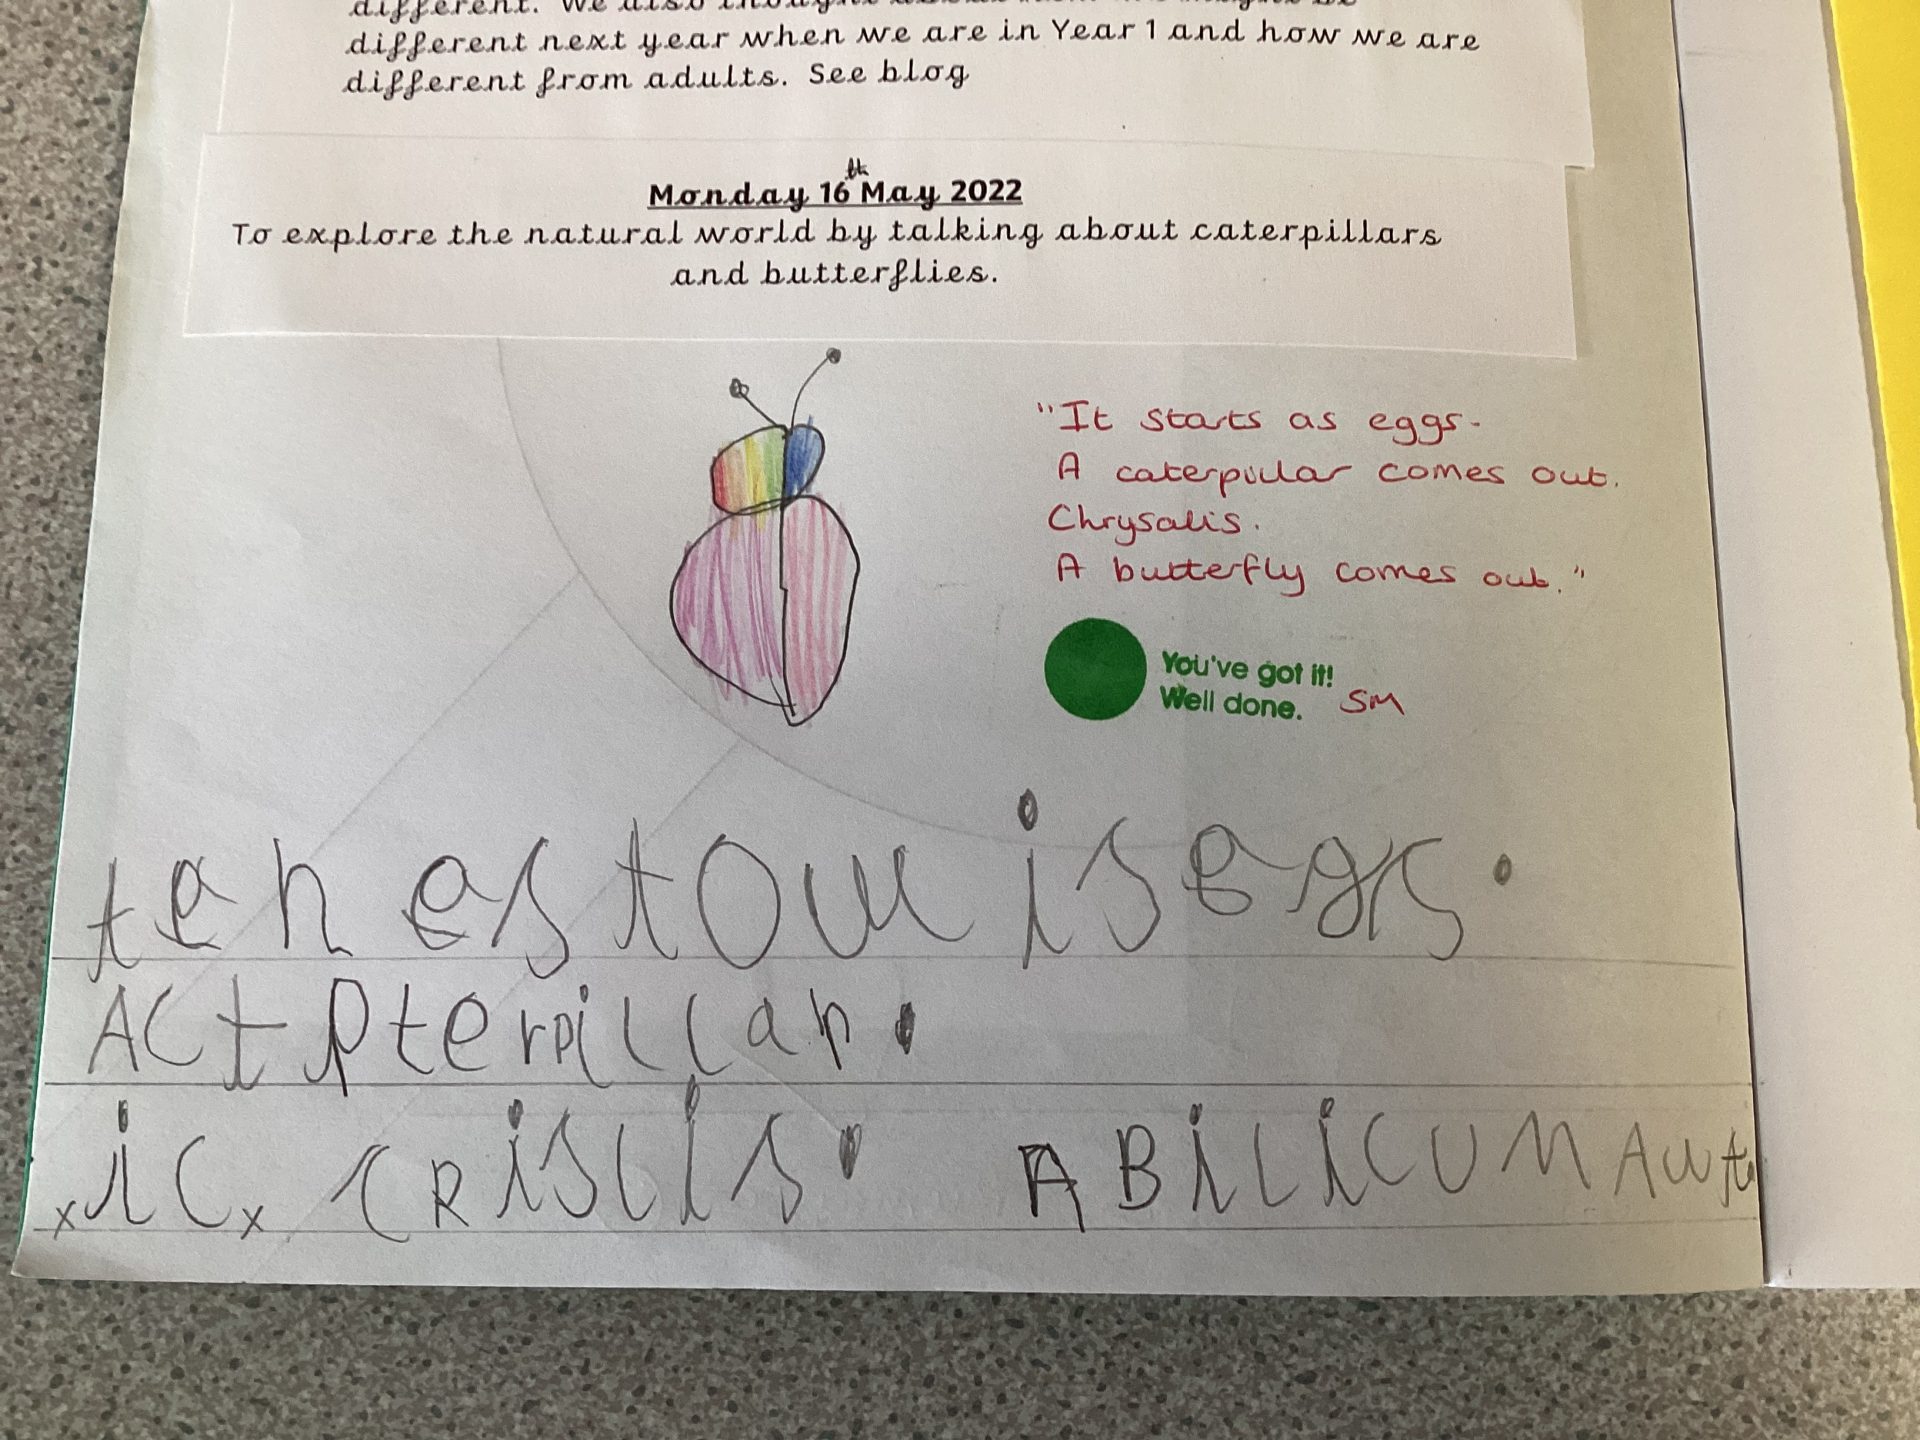 different. We also thought about how we might be
different next year when we are in Year 1 and how we are
different from adults. See blog
Monday 16th May 2022
To explore the natural world by talking about caterpillars
and butterflies.
"It starts as eggs.
A caterpillar comes out.
Chrysalis.
A butterfly comes out."
You've got it!
Well done. SM
is eggs.
ACt pterpillar.
xiCx CRiSLiS. A BiLiCUM AWt.